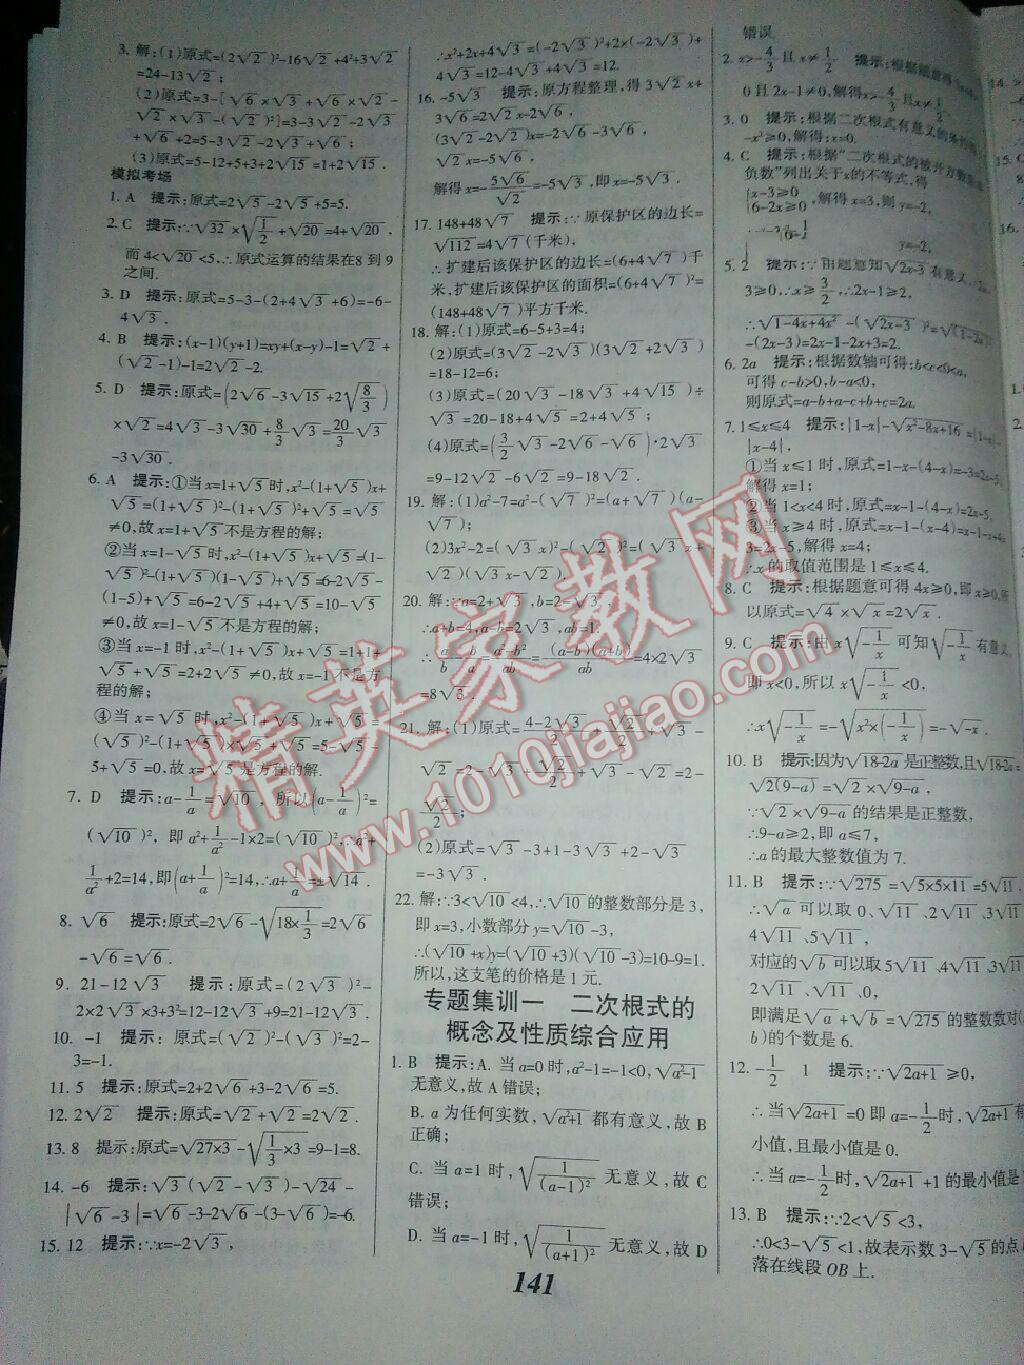 3. 解:(1)原式=(2√2)²-16√2+4²+3√2
=24-13√2;
(2)原式=3-[√6×√3+√6×√2-
√2×√3-(√2)²]=3-3√2-2√3
+√6+2=5-3√2-2√3+√6;
(3)原式=5-12+5+3+2√15=1+2√15.
模拟考场
1. A 提示:原式=2√5-2√5+5=5.
2. C 提示:∵√32×√(1/2)+√20=4+√20,
而4<√20<5,∴原式运算的结果在8到9
之间.
3. D 提示:原式=5-3-(2+4√3+6)=-6-
4√3.
4. B 提示:(x-1)(y+1)=xy+(x-y)-1=√2+
(√2-1)-1=2√2-2.
5. D 提示:原式=(2√6-3√15+2√(8/3))
×√2=4√3-3√30+8/3√3=20/3√3
-3√30.
6. A 提示:①当x=1+√5时,x²-(1+√5)x+
√5=(1+√5)²-(1+√5)²+√5=√5
≠0,故x=1+√5不是方程的解;
②当x=1-√5时,x²-(1+√5)x+√5=(1-
√5)²-(1+√5)(1-√5)+√5=6-2√5-
(1-5)+√5=6-2√5+4+√5=10-√5
≠0,故x=1-√5不是方程的解;
③当x=-1时,x²-(1+√5)x+√5=1+1+
√5+√5=2+2√5≠0,故x=-1不是方
程的解;
④当x=√5时,x²-(1+√5)x+√5=
(√5)²-(1+√5)×√5+√5=5-√5-
5+√5=0,故x=√5是方程的解.
7. D 提示:a-1/a=√10,所以(a-1/a)²=
(√10)²,即a²+1/a²-1×2=(√10)²,∴a²+
1/a²+2=14,即(a+1/a)²=14,∴a+1/a=±√14.
8. √6 提示:原式=2√6-√(18×1/3)=2√6
-√6=√6.
9. 21-12√3 提示:原式=(2√3)²-
2×2√3×3+3²=12-12√3+9=21-12√3.
10. -1 提示:原式=(√2)²-(√3)²=2-
3=-1.
11. 5 提示:原式=2+2√6+3-2√6=5.
12. 2√2 提示:原式=√2+√2=2√2.
13. 8 提示:原式=√(27×3)-√(1/3×3)=9-1=8.
14. -6 提示:√3(√2-√3)-√24-
|√6-3|=√6-3-2√6-(3-√6)=-6.
15. 12 提示:∵x=-2√3,
∴x²+2x+4√3=(-2√3)²+2×(-2√3)+
4√3=12-4√3+4√3=12.
16. -5√3 提示:原方程整理,得3√2x+
3√6=2√2x-2√6,
(3√2-2√2)x=-2√6-3√6,
√2x=-5√6,
解得x=-5√6/√2=-5√3,即x=-5√3.
17. 148+48√7 提示:∵原保护区的边长=
√112=4√7(千米),
∴扩建后该保护区的边长=(6+4√7)千
米,扩建后该保护区的面积=(6+4√7)²=
(148+48√7)平方千米.
18. 解:(1)原式=6-5+3=4;
(2)原式=(3√2-2√3)(3√2+2√3)
=18-12=6;
(3)原式=(20√3-18√3+4√15)÷
√3=20-18+4√5=2+4√5;
(4)原式=(3/2√2-2√6-√6)·2√3
=9-12√2-6√2=9-18√2.
19. 解:(1)a²-7=a²-(√7)²=(a+√7)(a-
√7);
(2)3x²-2=(√3x)²-(√2)²=(√3x+
√2)(√3x-√2).
20. 解:∵a=2+√3,b=2-√3,
∴a+b=4,a-b=2√3,ab=1.
∴a/b-b/a=(a²-b²)/ab=(a-b)(a+b)/ab=4×2√3
=8√3.
21. 解:(1)原式=(4-2√3)/2-√2/2+√3-
√2=2-√3+√2/2+√3-√2=2-
√2/2;
(2)原式=√3-3+1-3√3+2-√3
=-3√3.
22. 解:∵3<√10<4,∴√10的整数部分是3,
即x=3,小数部分y=√10-3,
∴(√10+x)y=(√10+3)(√10-3)=10-9=1.
所以,这支笔的价格是1元.
专题集训一 二次根式的
概念及性质综合应用
1. B 提示:A. 当a=0时,a²-1=-1<0,√(a²-1)
无意义,故A错误;
B. a为任何实数,√(a²+1)都有意义,故B
正确;
C. 当a=1时,√(1/(a-1)²)无意义,故C
错误;
D. 当a=-1时,√(1/(a+1)²)无意义,故D
错误
2. x>-4/3且x≠1/2 提示:根据题意得
0且2x-1≠0,解得x>-4/3且x≠1/2.
3. 0 提示:根据二次根式有意义的条件得
-x²≥0,解得:x=0.
4. C 提示:根据"二次根式的被开方数
负数"列出关于x的不等式,得
{x-3≥0
{6-2x≥0,解得x=3,则y=-2,
y=-2,
5. 2 提示:∵由题意知√(2x-3)有意义,
3≥0,∴x≥3/2,∴2x-1≥2,
∴√(1-4x+4x²)-(√(2x-3))²=√(1-2x)
-(2x-3)=2x-1-2x+3=2.
6. 2a 提示:根据数轴可得:b<c<0<a,
可得c-b>0,b-a<0,
则原式=a-b+a-c+b+c=2a.
7. 1≤x≤4 提示:|1-x|-√(x²-8x+16)=|1-x|-
|x-4|.
①当x≤1时,原式=1-x-(4-x)=-3=2x-5,
解得x=1;
②当1<x<4时,原式=x-1-(4-x)=2x-5,
③当x≥4时,原式=x-1-(x-4)=x-1-x+4=
3=2x-5,解得x=4;
∴x的取值范围是1≤x≤4.
8. C 提示:根据题意可得4x≥0,即x≥0,所
以原式=√4×√x=2√x.
9. C 提示:由x√(-1/x)可知√(-1/x)有意义,
即x<0,所以x√(-1/x)<0,
∴x√(-1/x)=-√(x²×(-1/x))=-√(-x).
10. B 提示:因为√(18-2a)是正整数,且√(18-2a)=
√(2(9-a))=√2×√(9-a),
∵√2×√(9-a)的结果是正整数
∴9-a≥2,即a≤7,
∴a的最大整数值为7.
11. B 提示:∵√275=√(5×5×11)=5√11,
∴√a可以取0、√11、2√11、3√11
4√11、5√11,
对应的√b可以取5√11、4√11、3√11
2√11、√11、0,
即满足√a+√b=√275的整数数对(
b)的个数是6.
12. -1/2 1 提示:∵√(2a+1)≥0,
∴当√(2a+1)=0即a=-1/2时,√(2a+1)有
小值,且最小值是0.
∴当a=-1/2时,√(2a+1)+1的最小值是
13. B 提示:∵2<√5<3,
∴0<3-√5<1,故表示数3-√5的点
落在线段OB上.
141
精英家教网
www.1010jiajiao.com